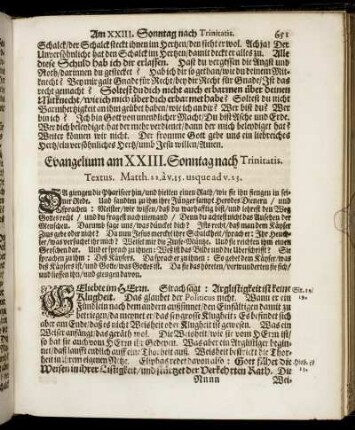 Am XXIII. Sonntag nach Trinitatis. 651
Schalck/ der Schalck steckt ihnen im Hertzen/ den siehet er wol. Ach ja! Der
Unversöhnliche hat den Schalck im Hertzen/ damit deckt er alles zu. Alle
diese Schuld hab ich dir erlassen. Hast du vergessen die Angst und
Noth/ darinnen du gesteckt? Hab ich dir so gethan/ wie du deinem Mit-
knecht? Bey mir galt Gnade für Recht/ bey dir Recht für Gnade/ Ist das
recht gemacht? Soltest du dich nicht auch erbarmen über deinen
Mitknecht/ wie ich mich über dich erbarmet habe? Soltest du nicht
Barmhertzigkeit an ihm geübet haben/ wie ich an dir? Wer bist du? Wer
bin ich? Ich bin Gott von unendlicher Macht/ Du bist Asche und Erde.
Wer dich beleidiget hat der mehr verdienet/ dann der mich beleidiget hat?
Weiter können wir nicht. Der fromme Gott gebe uns ein liebreiches
Hertz/ ein versöhnliches Hertz/ umb Jesu willen/ Amen.
Evangelium am XXIII. Sonntag nach Trinitatis.
Textus. Matth. 22, à v. 15. usque ad v. 23.
DA giengen die Phariseer hin/ und hielten einen Rath/ wie sie ihn fiengen in sei-
ner Rede. Und sandten zu ihm ihre Jünger sampt Herodes Dienern/ und
sprachen: Meister/ wir wissen/ daß du warhafftig bist/ und lehrest den Weg
Gottes recht/ und du fragest nach niemand/ Denn du achtest nicht das Ansehen der
Menschen. Darumb sage uns/ was düncket dich? Ists recht/ daß man dem Käyser
Zinß gebe oder nicht? Da nun Jesus merckt ihre Schalckheit/ sprach er: Ihr Heuch-
ler/ was versuchet ihr mich? Weiset mir die Zinß-Müntze. Und sie reichten ihm einen
Groschen dar. Und er sprach zu ihnen: Weß ist das Bilde und die Uberschrifft? Sie
sprachen zu ihm: Deß Käysers. Da sprach er zu ihnen: So gebet dem Käyser/ was
deß Käysers ist/ und Gotte/ was Gottes ist. Da sie das höreten/ verwunderten sie sich/
und liessen ihn/ und giengen davon.
GEliebte im HErrn. Sirach sagt: Arglistigkeit ist keine
Klugheit. Das glaubet der Politicus nicht. Wann er ein
Fündlein nach dem andern aussinnet/ den Einfältigen damit zu
betriegen/ da meynet er/ das sey grosse Klugheit; Es befindet sich
aber am Ende/ daß es nicht Weißheit oder Klugheit ist gewesen. Was ein
Weiser anfängt/ das geräth wol. Die Weißheit/ wie sie vom HErrn ist/
so hat sie auch vom HErrn ihr Gedeyen. Was aber ein Arglistiger begin-
net/ daß laufft endlich auff eine Thorheit auß. Weißheit bestrickt die Thor-
heit in ihrem eigenen Netze. Eliphas redet davon also: Gott fähet die
Weisen in ihrer Listigkeit/ und stürtzet der Verkehrten Rath. Die
Nnnn Wei-